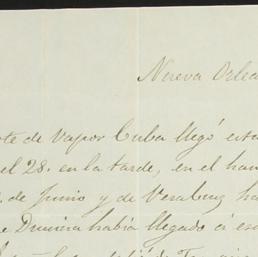 Nueva Orlea
ote de vapor Cuba llegó esta
el 28. en la tarde, en el han
de Junio y de Veracruz ha
e Drusina había llegado á es